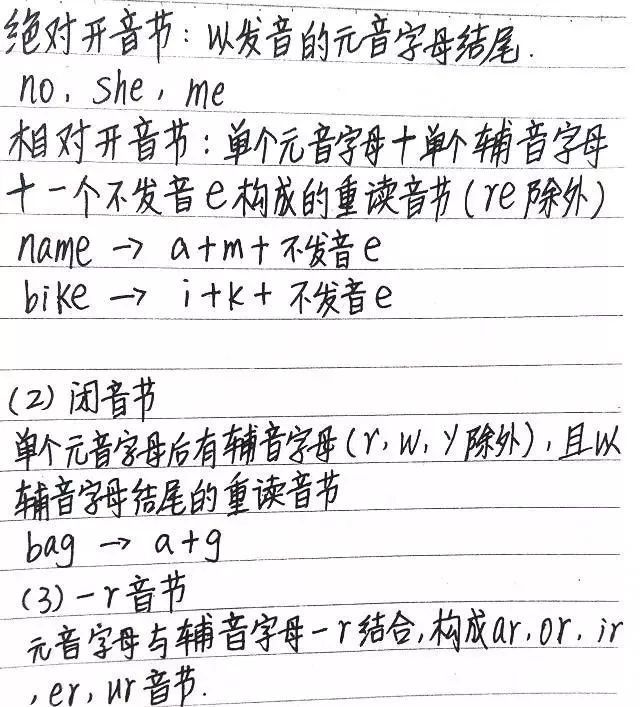 绝对开音节：以发音的元音字母结尾.
no, she, me
相对开音节：单个元音字母＋单个辅音字母
＋一个不发音e构成的重读音节(re除外)
name → a+m+不发音e
bike → i+k+不发音e
(2) 闭音节
单个元音字母后有辅音字母(r, w, y除外), 且以
辅音字母结尾的重读音节
bag → a+g
(3) -r音节
元音字母与辅音字母-r结合,构成ar, or, ir
, er, ur音节.